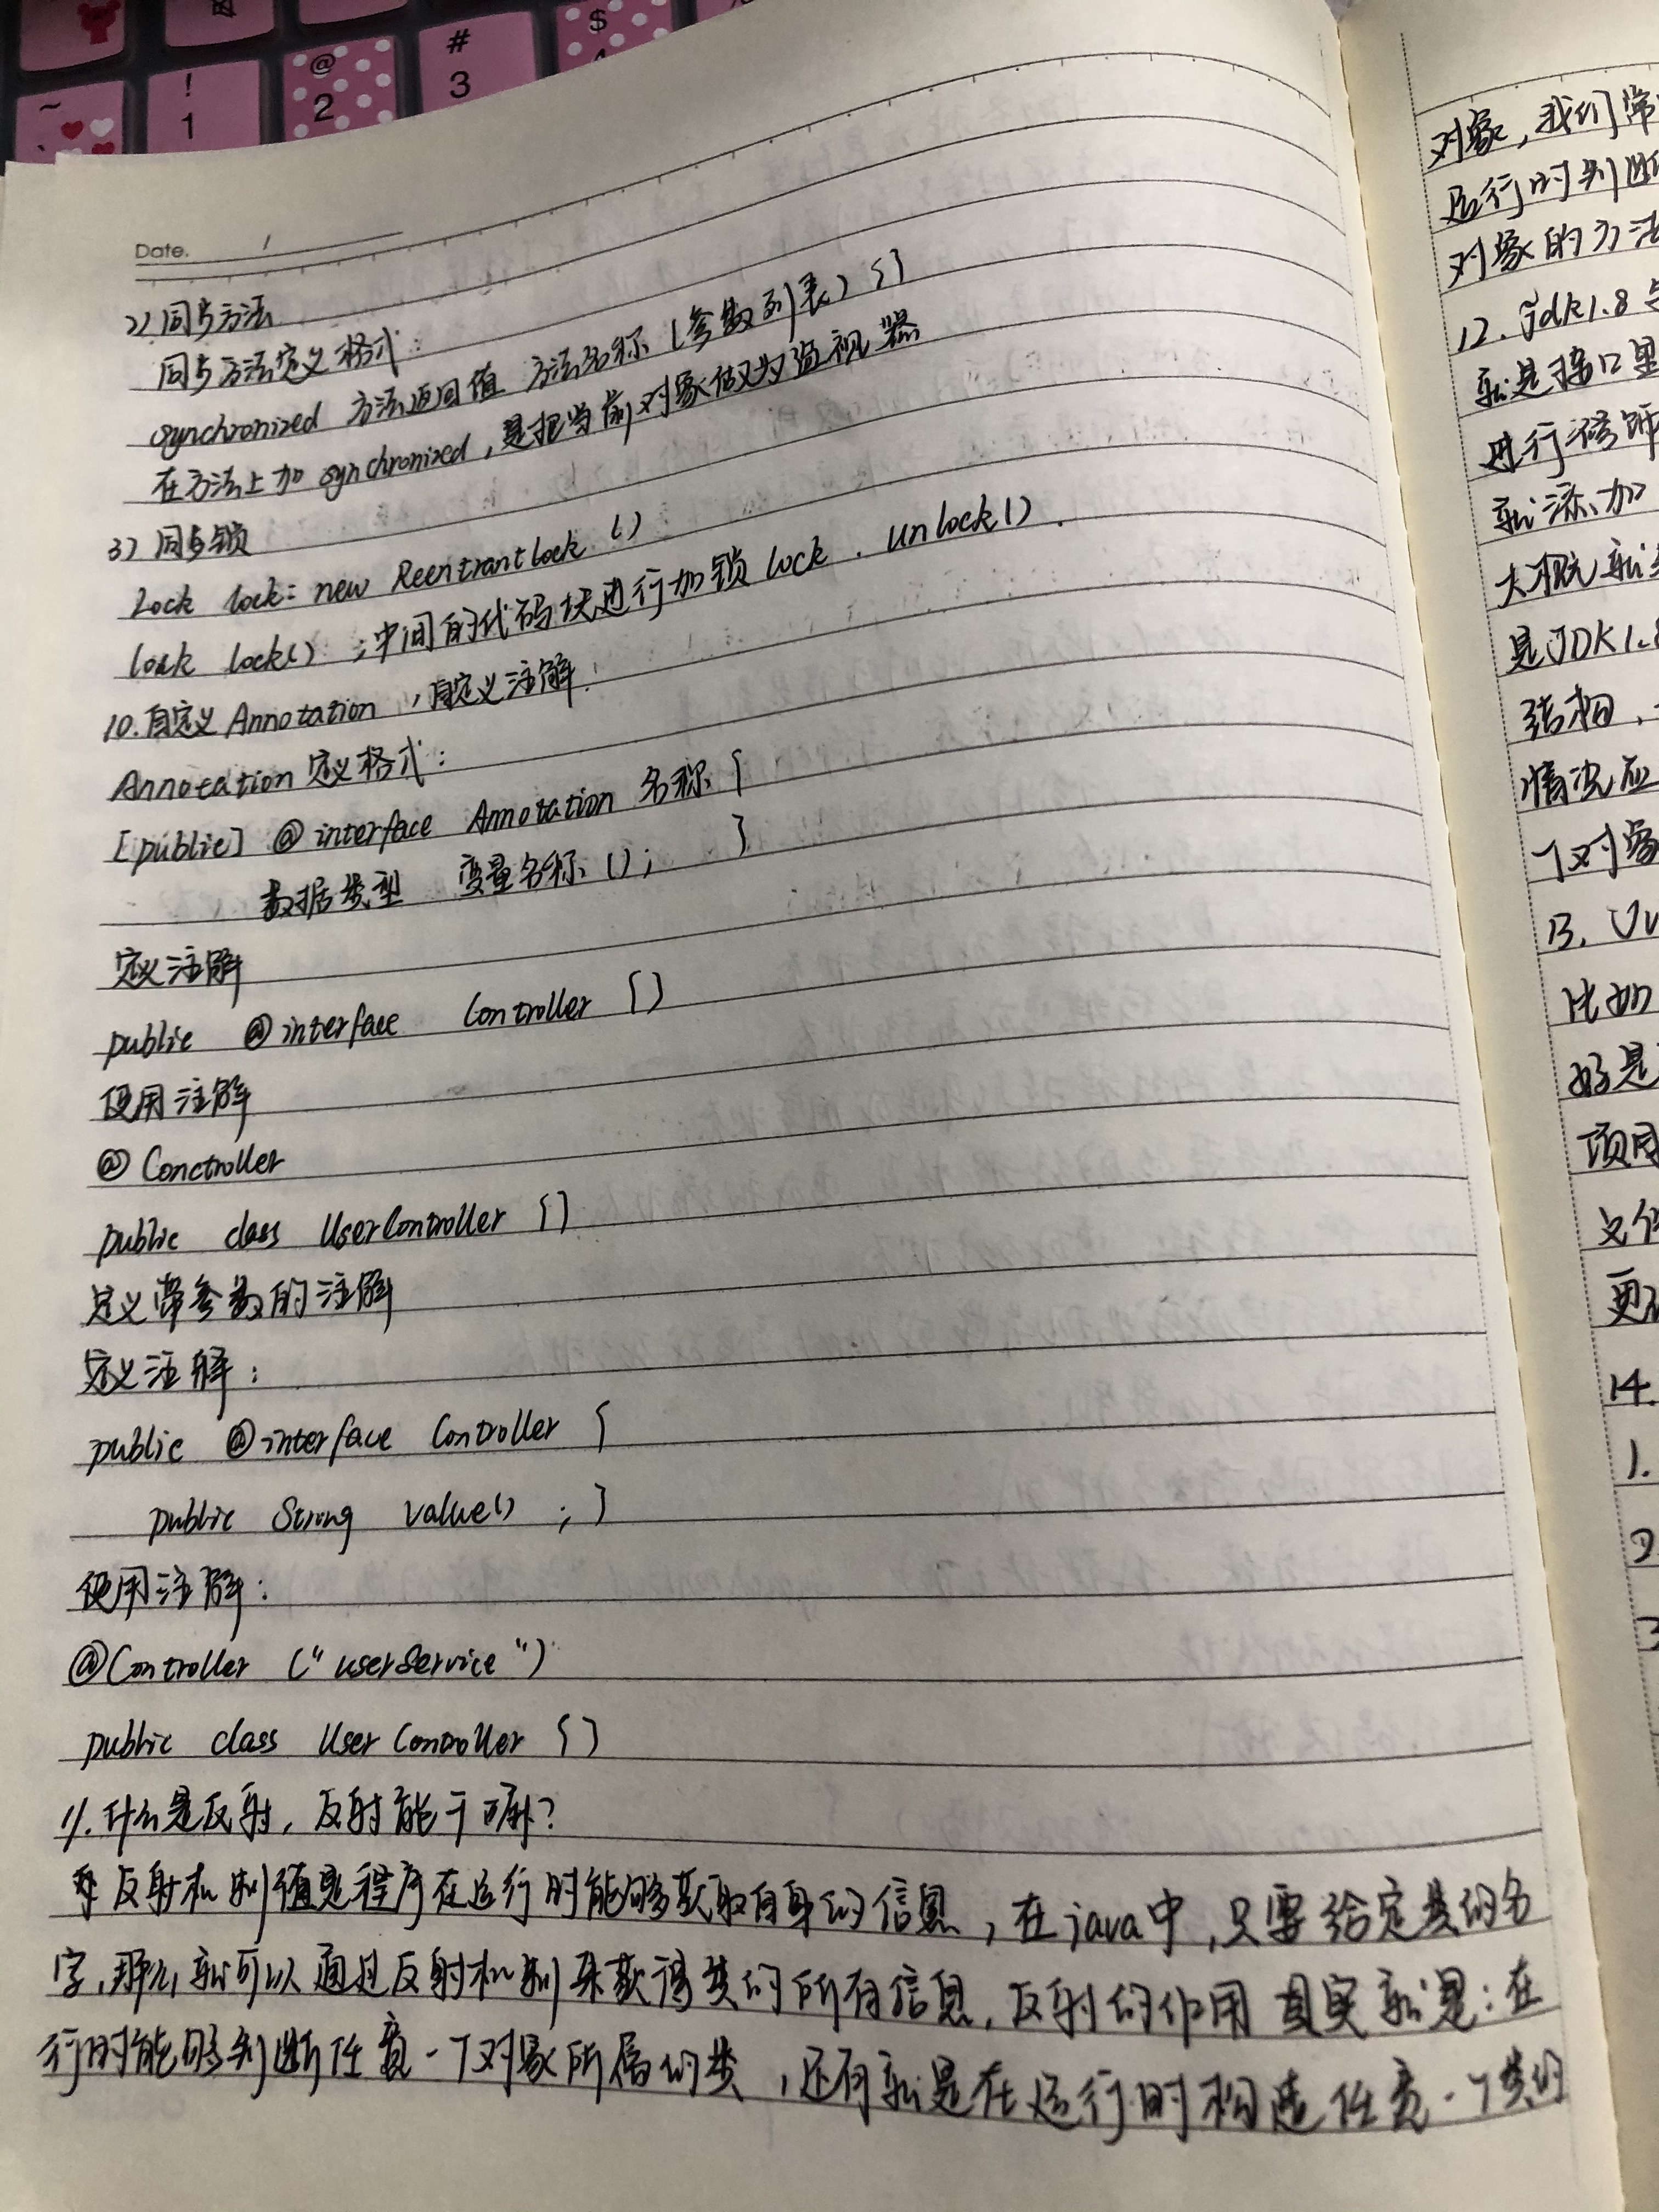 ~
!
1
@
2
#
3
$
Date. /
2) 同步方法
同步方法定义格式:
synchronized 方法返回值 方法名称 (参数列表) {}
在方法上加 synchronized, 是把当前对象做为监视器
3) 同步锁
Lock lock = new ReentrantLock ()
lock lock() ; 中间的代码块进行加锁 lock . unlock() .
10. 自定义 Annotation , 自定义注解:
Annotation 定义格式:
[public] @ interface Annotation 名称 {
数据类型 变量名称 (); }
定义注解
public @interface Controller {}
使用注解
@ Conctroller
public class UserController {}
定义带参数的注解
定义注解:
public @interface Controller {
public String value() ; }
使用注解:
@Controller ("userService")
public class UserController {}
11. 什么是反射, 反射能干嘛?
反射机制值是程序在运行时能够获取自身的信息, 在java中, 只要给定类的名
字, 那么就可以通过反射机制来获该类的所有信息, 反射的作用其实就是: 在
行时能够判断任意一个对象所属的类, 还有就是在运行时构造任意一个类的
对象, 我们常
运行时判断
对象的方法
12. Jdk1.8
就是接口里
进行修饰
就添加
大概就
是JDK1.8
结构,
情况应
个对象
13.
比如
好是
项目
更
14.
1.
2
3